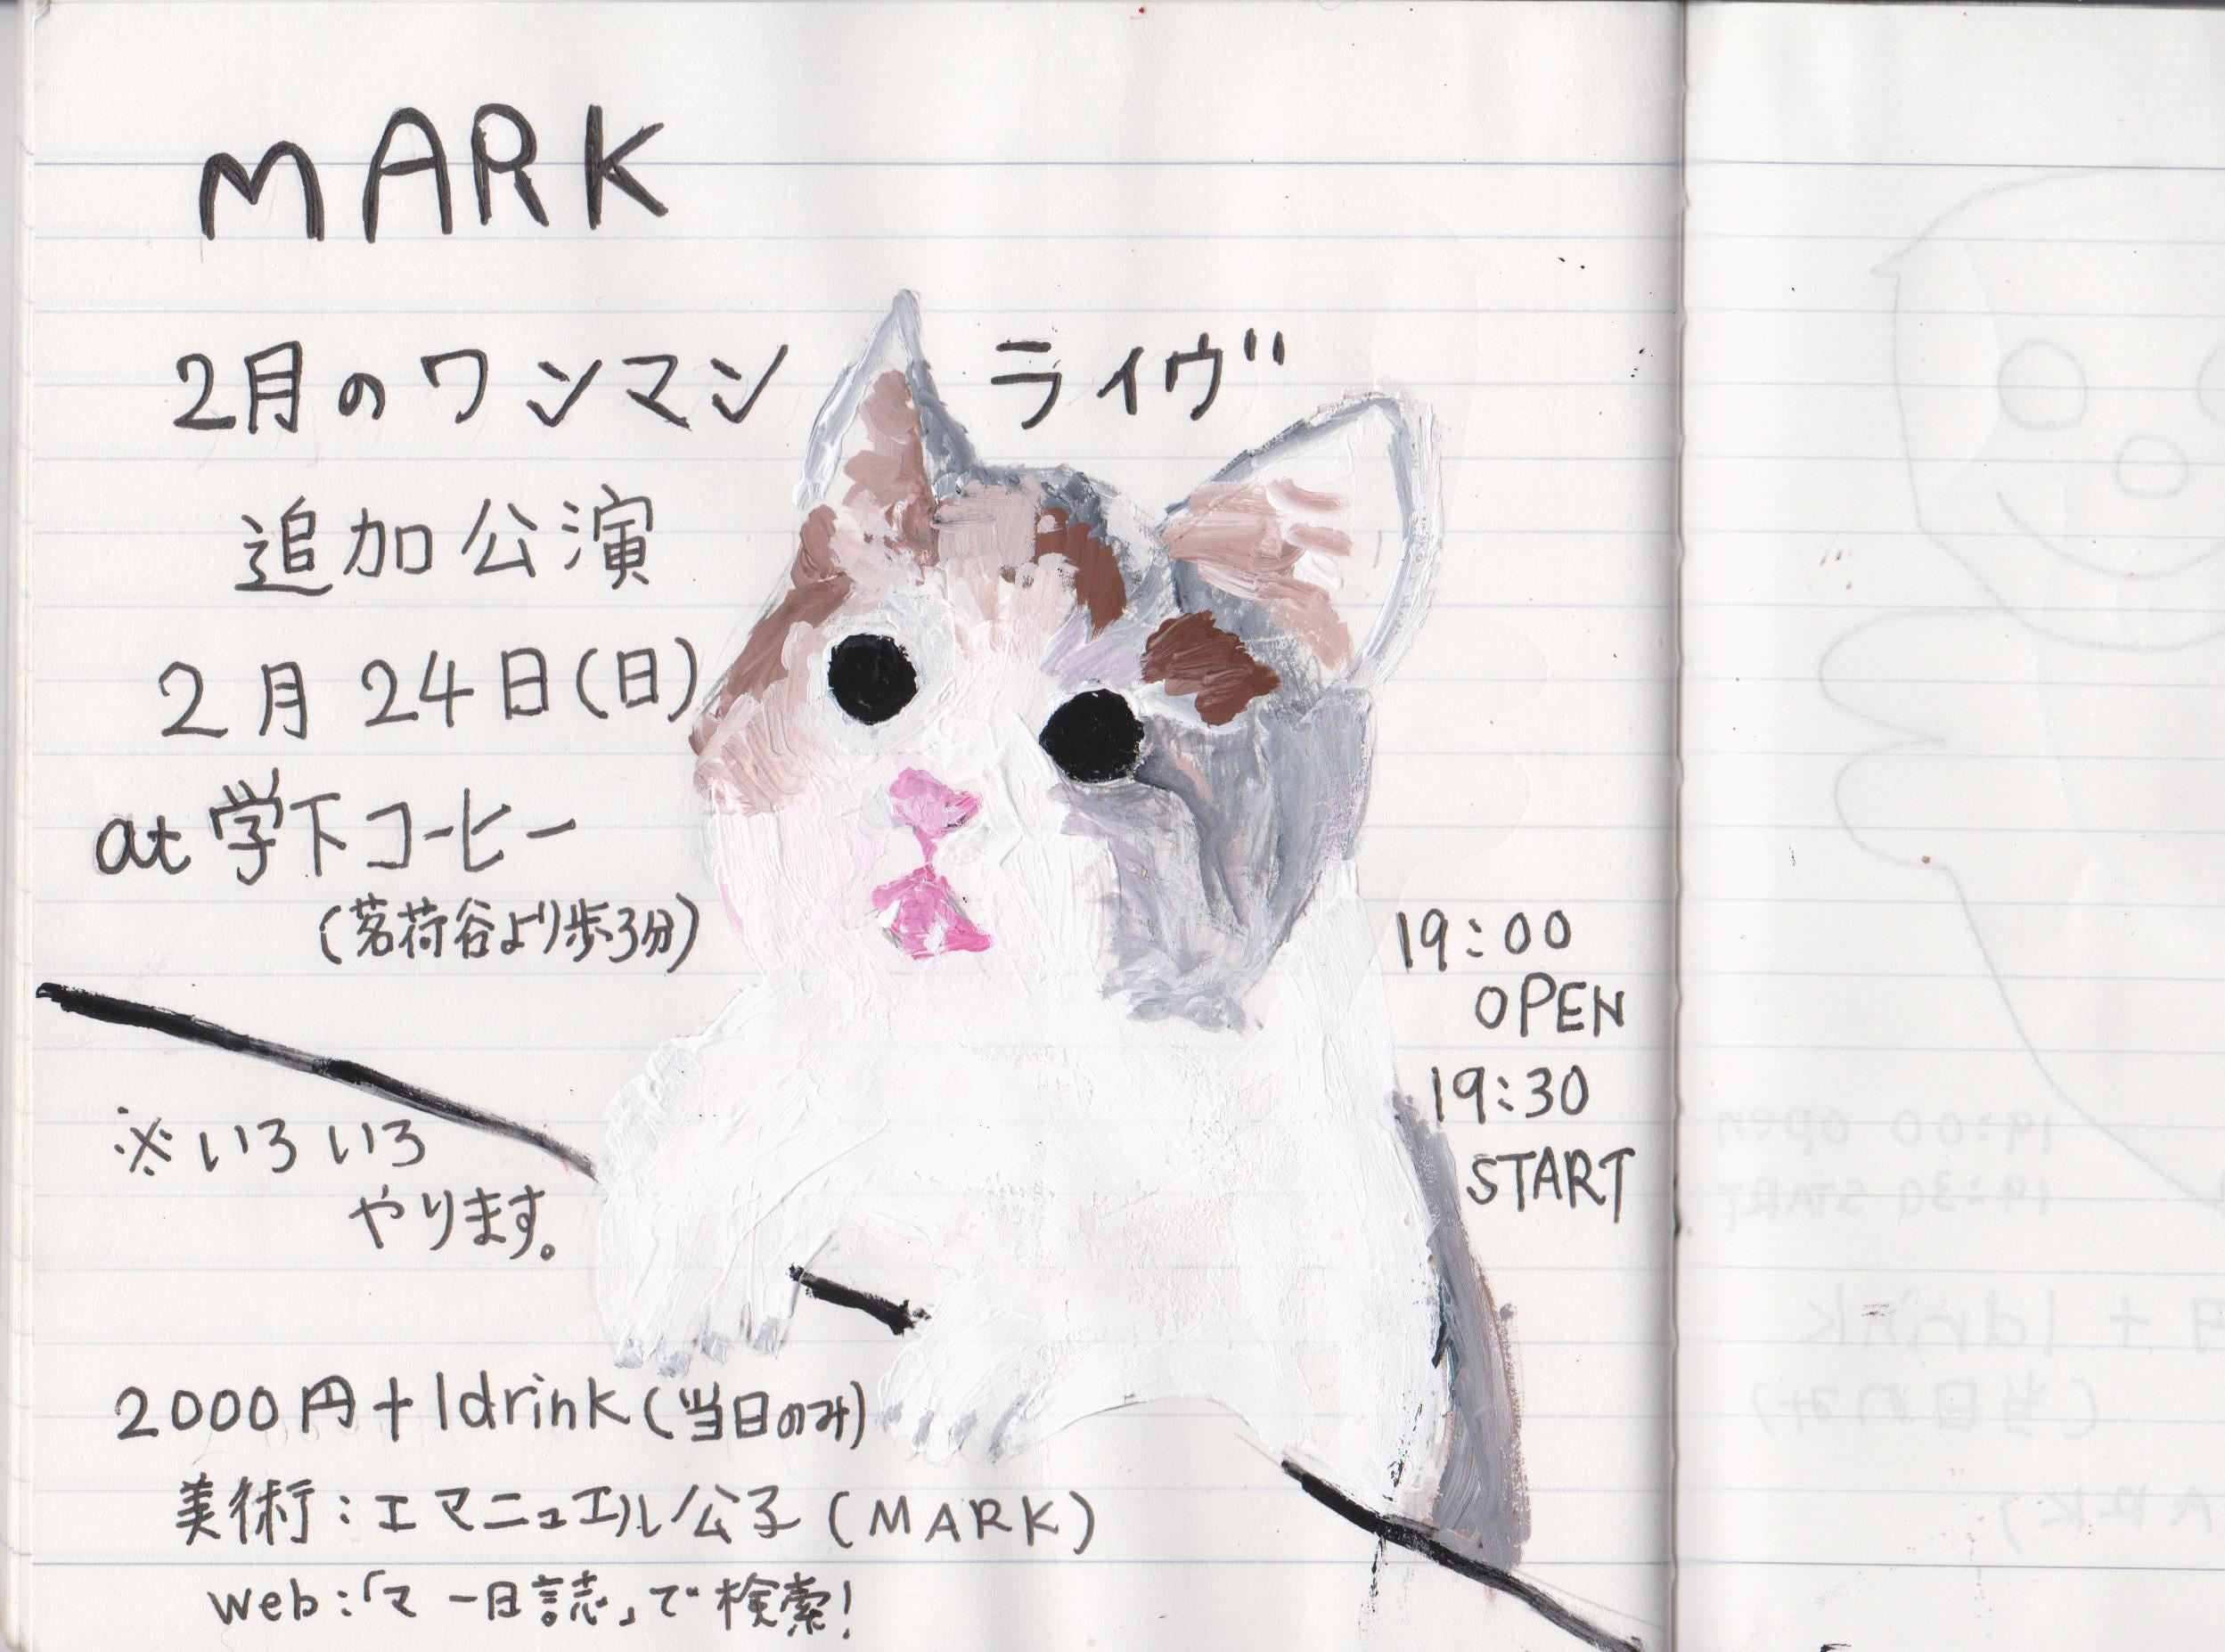 MARK
2月のワンマンライヴ
追加公演
2月24日(日)
at 学下コーヒー
(茗荷谷より歩3分)
19:00
OPEN
19:30
START
※いろいろ
やります。
2000円+1drink(当日のみ)
美術:エマニュエル公子(MARK)
web:「マー日誌」で検索!
19:00 open
19:30 START
円+1drink
(当日のみ)
ARK)